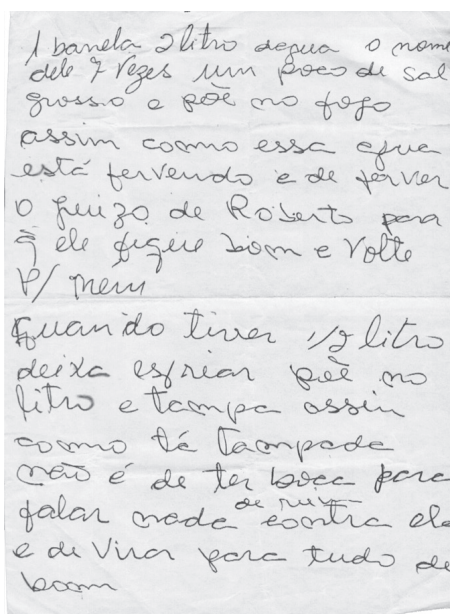 1 banela 2 litro degua o nome
dele 7 vezes um poco de sal
grosso e põe no fogo
assim coomo essa agua
está fervendo e de ferver
o juizo de Roberto para
q̃ ele fique boom e volte
P/ mem
Quando tiver 1/2 litro
deixa esfriar põe no
litro e tampa assin
coomo tá tampade
não é de ter boca para
falar nada de ruim contra ele
e de virar para tudo de
boom